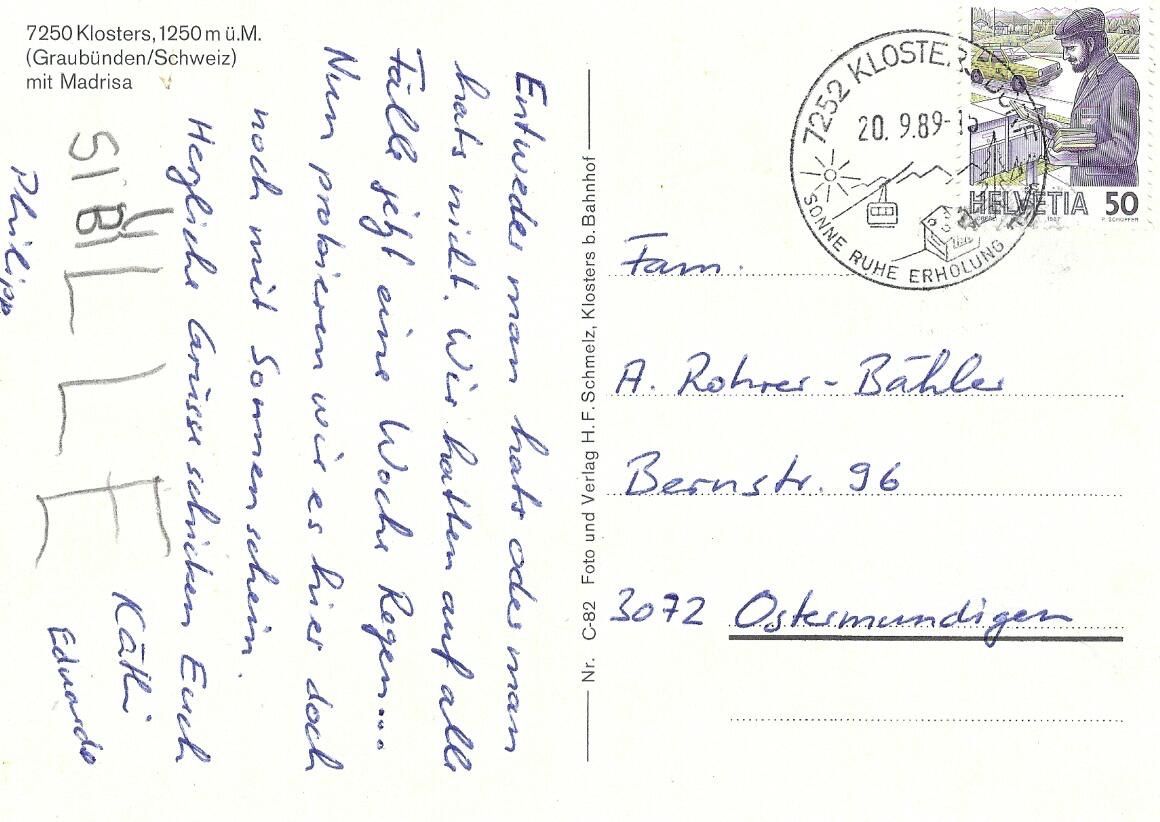 7250 Klosters, 1250 m ü.M.
(Graubünden/Schweiz)
mit Madrisa
Entweder man hats oder man
hats nicht. Wir hatten auf alle
Fälle jetzt eine Woche Regen...
Nun probieren wir es hier doch
noch mit Sonnenschein.
Herzliche Grüsse schicken Euch
Käthi
Eduardo
SIBILLE
Philipp
Nr. C-82 Foto und Verlag H. F. Schmelz, Klosters b. Bahnhof
7252 KLOSTERS
20. 9.89-15
SONNE RUHE ERHOLUNG
HELVETIA 50
1987
Fam.
A. Rohrer-Bähler
Bernstr. 96
3072 Ostermundigen